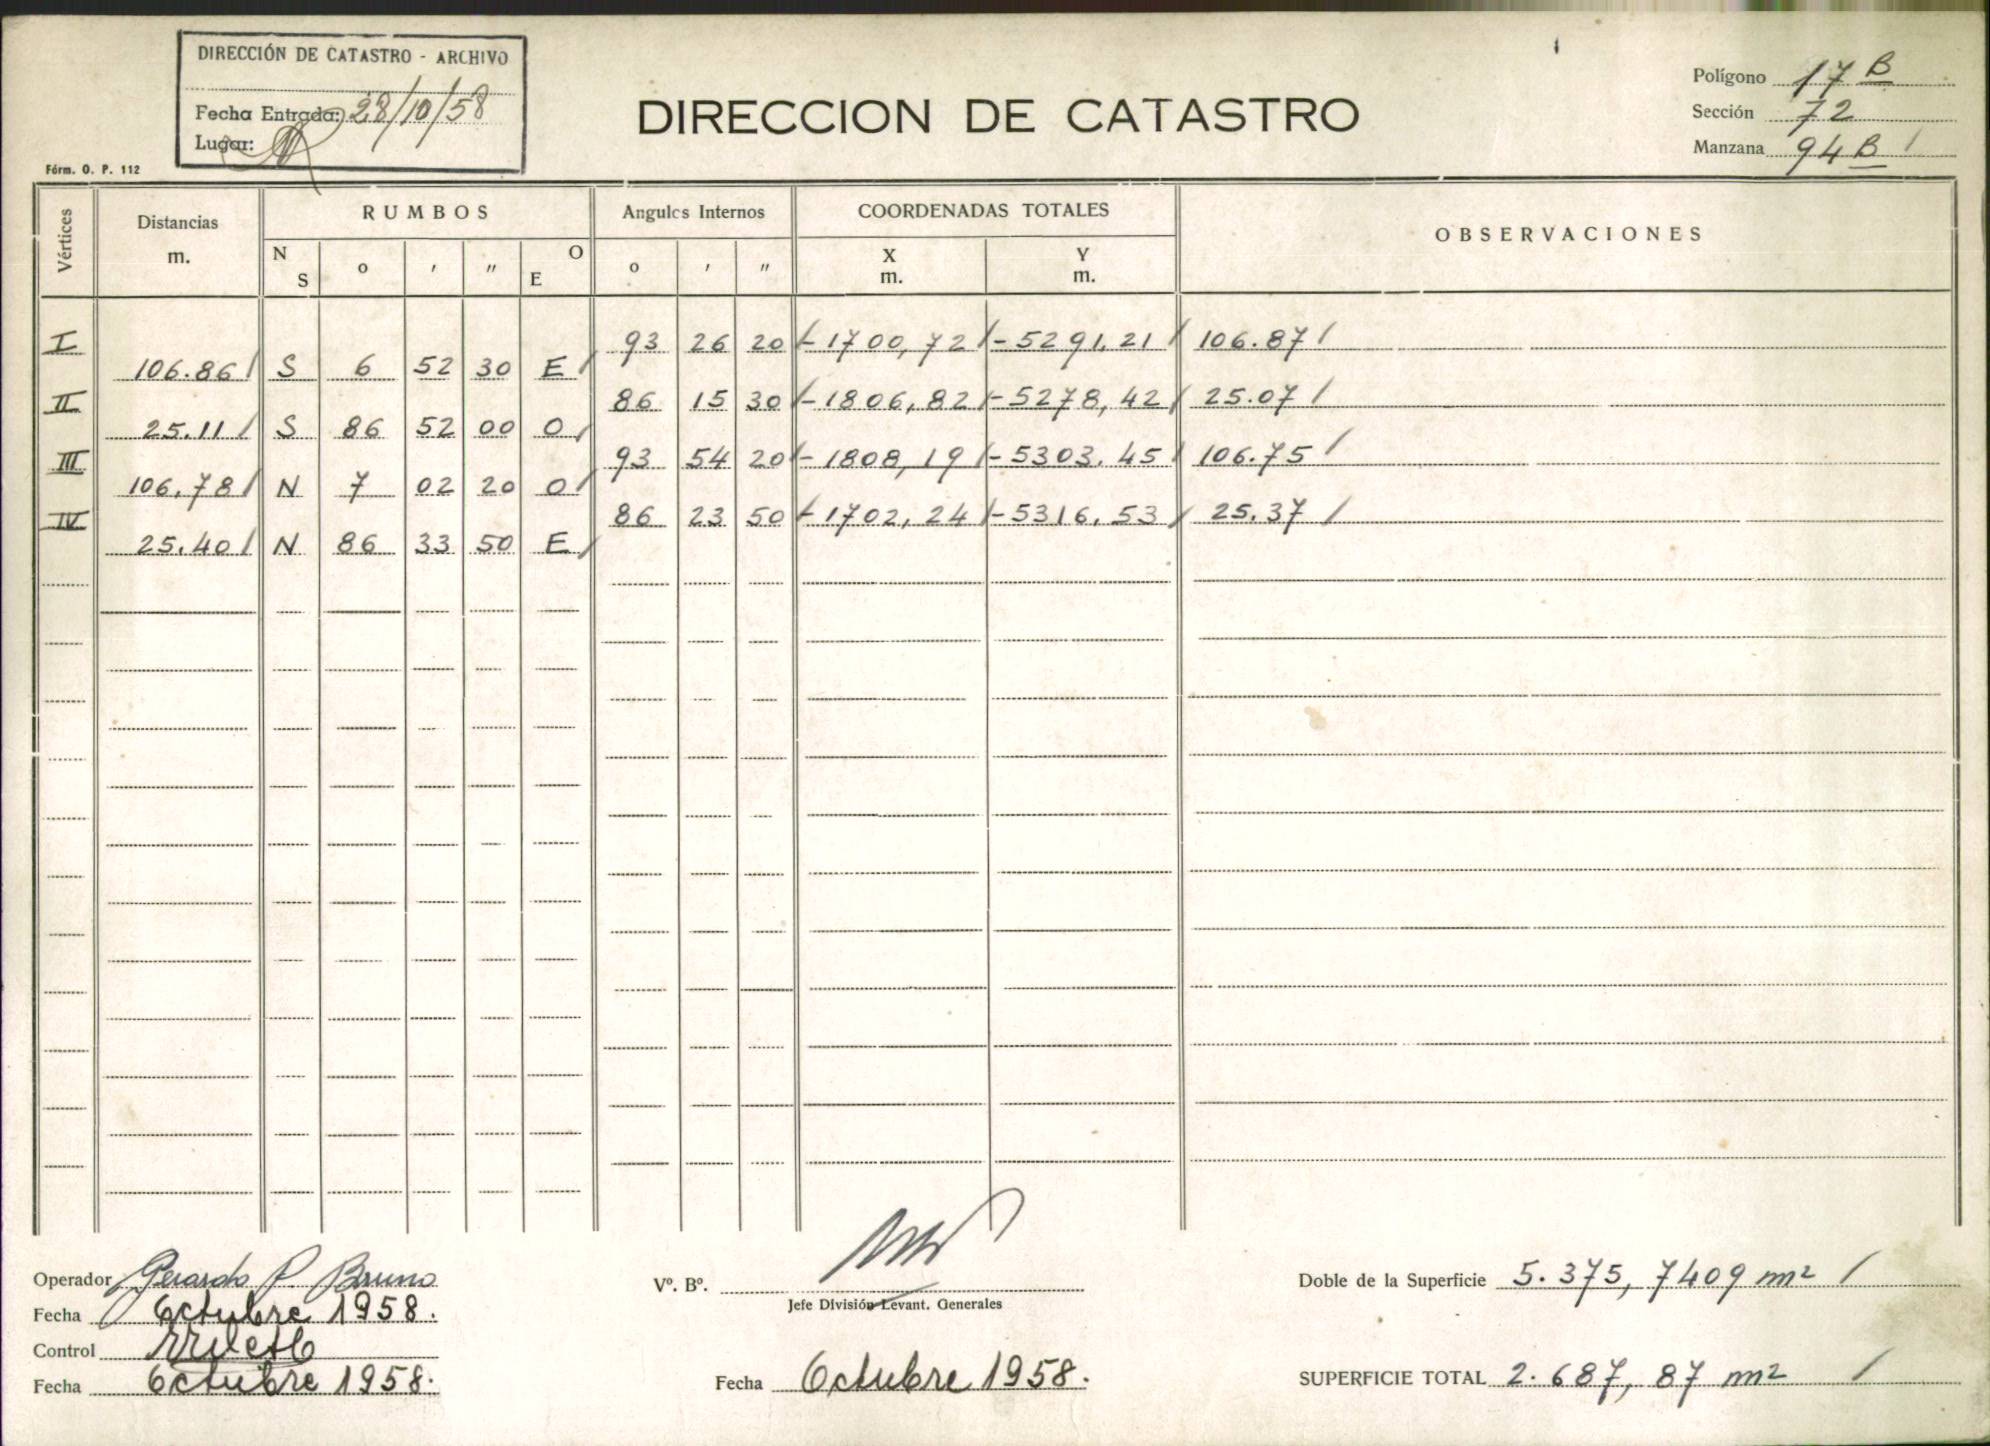 DIRECCIÓN DE CATASTRO - ARCHIVO
Fecha Entrada: 28/10/58
Lugar:
Fórm. O. P. 112
DIRECCION DE CATASTRO
Polígono 17 B
Sección 72
Manzana 94 B /
Vértices
Distancias
m.
RUMBOS
N
S
o
′
″
O
E
Angulos Internos
o
′
″
COORDENADAS TOTALES
X
m.
Y
m.
OBSERVACIONES
I 93 26 20 / - 1700,72 / - 5291,21 / 106.87 /
106.86 / S 6 52 30 E /
II 86 15 30 / - 1806,82 / - 5278,42 / 25.07 /
25.11 / S 86 52 00 O /
III 93 54 20 / - 1808,19 / - 5303.45 / 106.75 /
106,78 / N 7 02 20 O /
IV 86 23 50 / - 1702,24 / - 5316,53 / 25.37 /
25.40 / N 86 33 50 E /
Operador Gerardo P. Bruno
Fecha Octubre 1958.
Control
Fecha Octubre 1958.
Vº. Bº.
Jefe División Levant. Generales
Fecha Octubre 1958.
Doble de la Superficie 5.375,7409 m2 /
SUPERFICIE TOTAL 2.687,87 m2 /